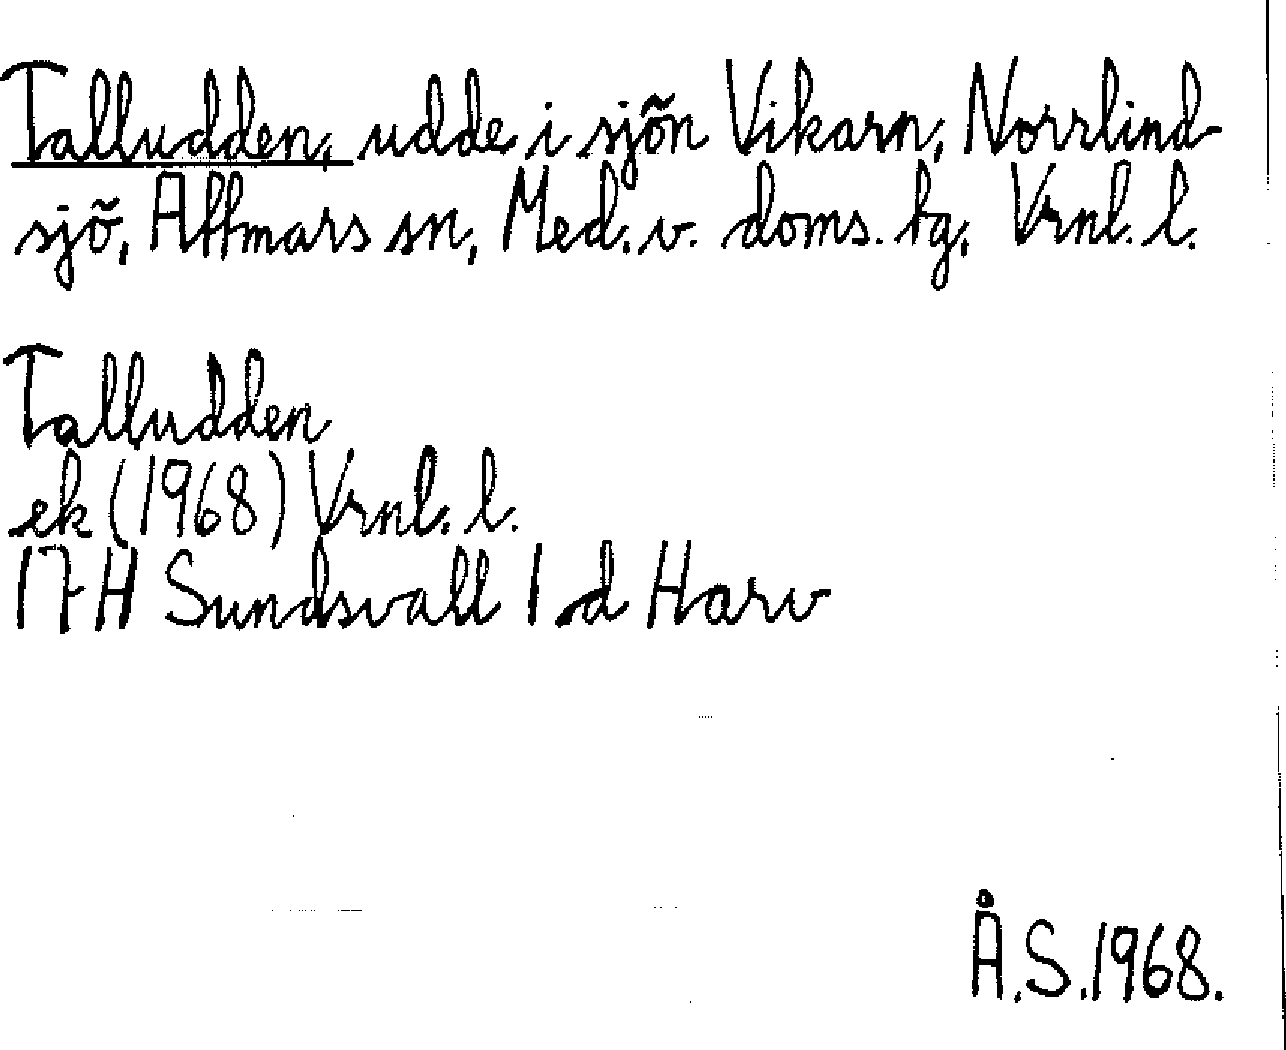 Talludden, udde i sjön Vikarn, Norrlind-
sjö, Attmars sn, Med. v. doms. tg, Vrnl. l.
Talludden
ek (1968) Vrnl. l.
17H Sundsvall 1 d Harv
Å.S.1968.